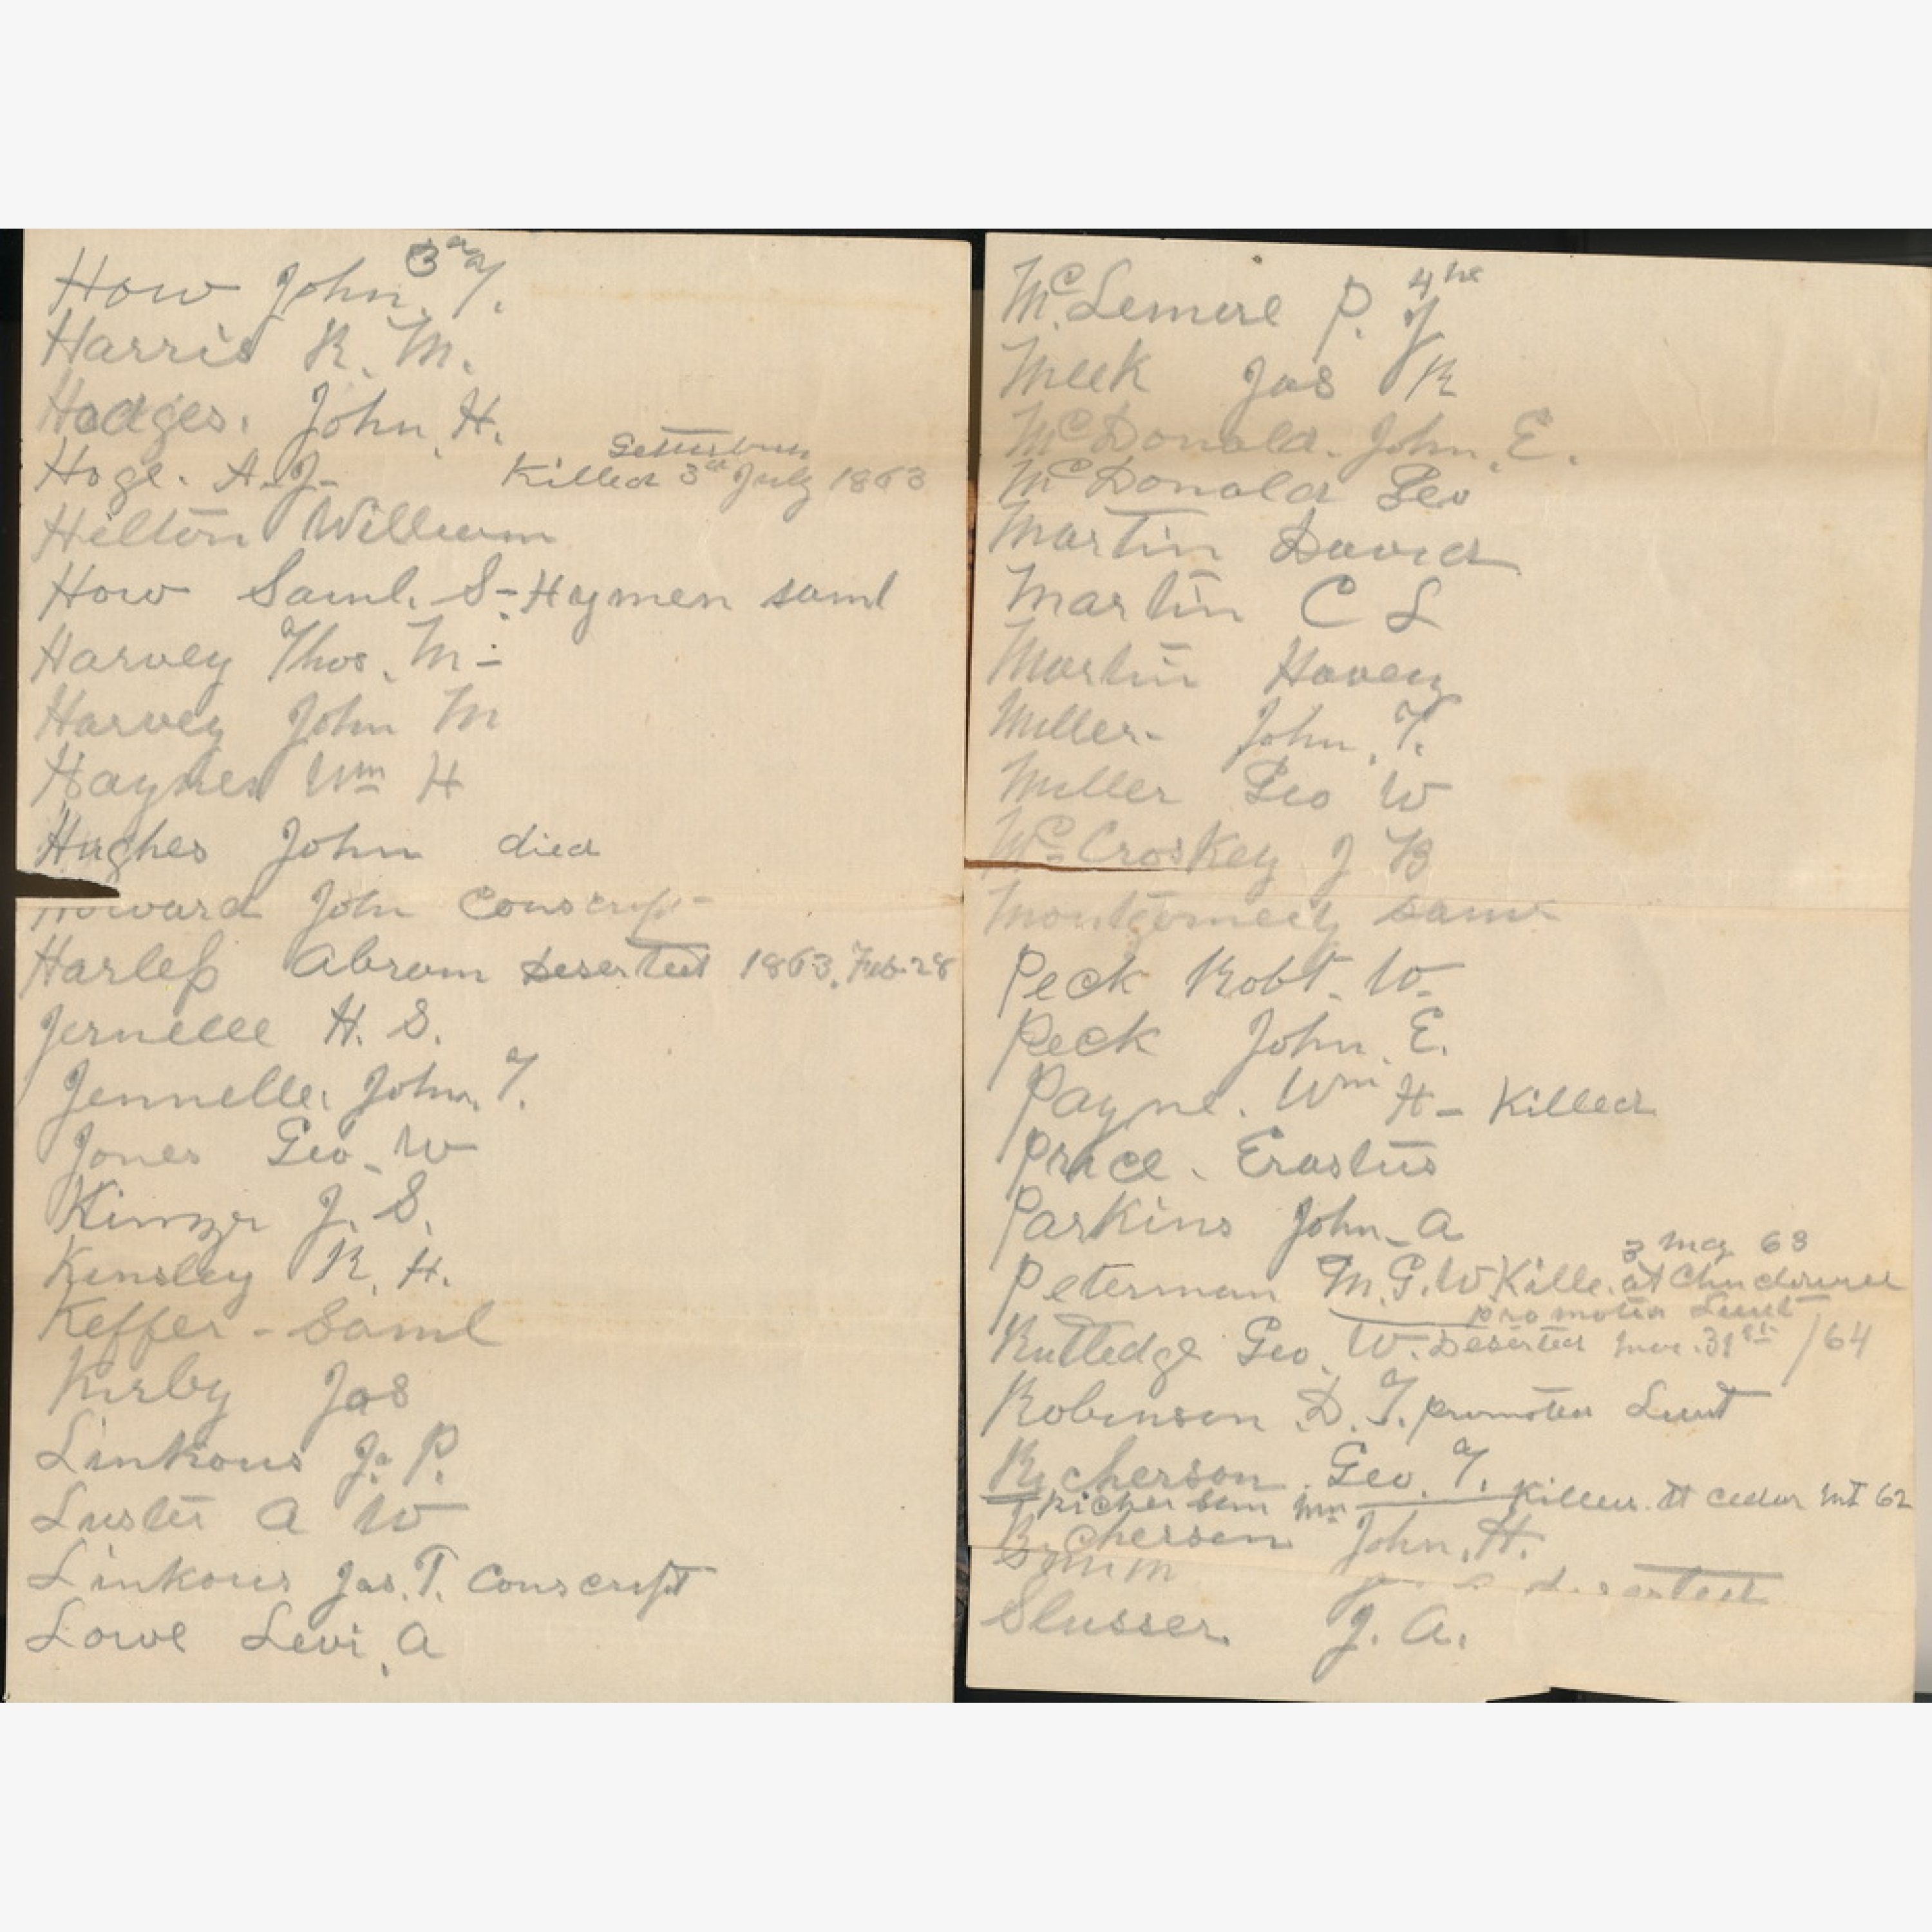 3rd
How John. T.
Harris R. M.
Hodges. John. H.
Gettysburg
Hoge. A. J- Killed 3rd July 1863
Hilton William
How Saml. S- Haymen saml
Harvey Thos. M-
Harvey John M
Haynes Wm H
Hughes John died
Howard John Conscript
Harless Abram Deserted 1863. Feb. 28
Jernelle H. S.
Jennelle. John. T.
Jones Geo- W
Kinzer J. S.
Kensley R. H.
Keffer - Saml
Kirby Jas
Linkous J. P.
Luster A W
Linkous Jas. T. Conscript
Lowe Levi. A
4th
McLemere P. J
Meek Jas R
McDonald. John. E.
McDonald Geo
Martin David
Martin C L
Martin Haven
Miller- John. T.
Miller Geo W
McCroskey J B
Montgomery Sam
Peck Robt- W-
Peck John. E.
Payne. Wm H- Killed
Price. Erastus
Parkins John- A
3 May 63
Peterman M. G. W Kille. at
promoted Lieut
Rutledge Geo. W. Deserted 31st /64
Robinson D. T. promoted Lieut
Richerson. Geo. T.
Richerson Wm Killed. at Cedar Mt 62
Richerson John. H.
deserted
Slusser. J. A.